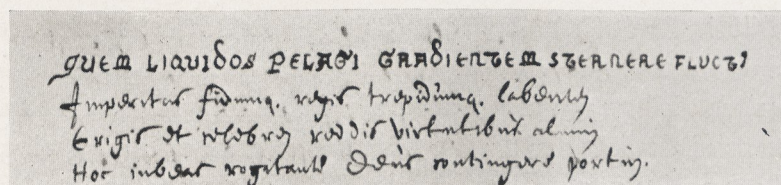 QUEM LIQUIDOS PELAGI GRADIENTEM STERNERE FLUCT'
Imperitas fidumq. regis trepidumq. labentẽ
Erigis et celebrẽ reddis virtutibus almũ
Hoc iubeas rogitante Deus contingere portũ.